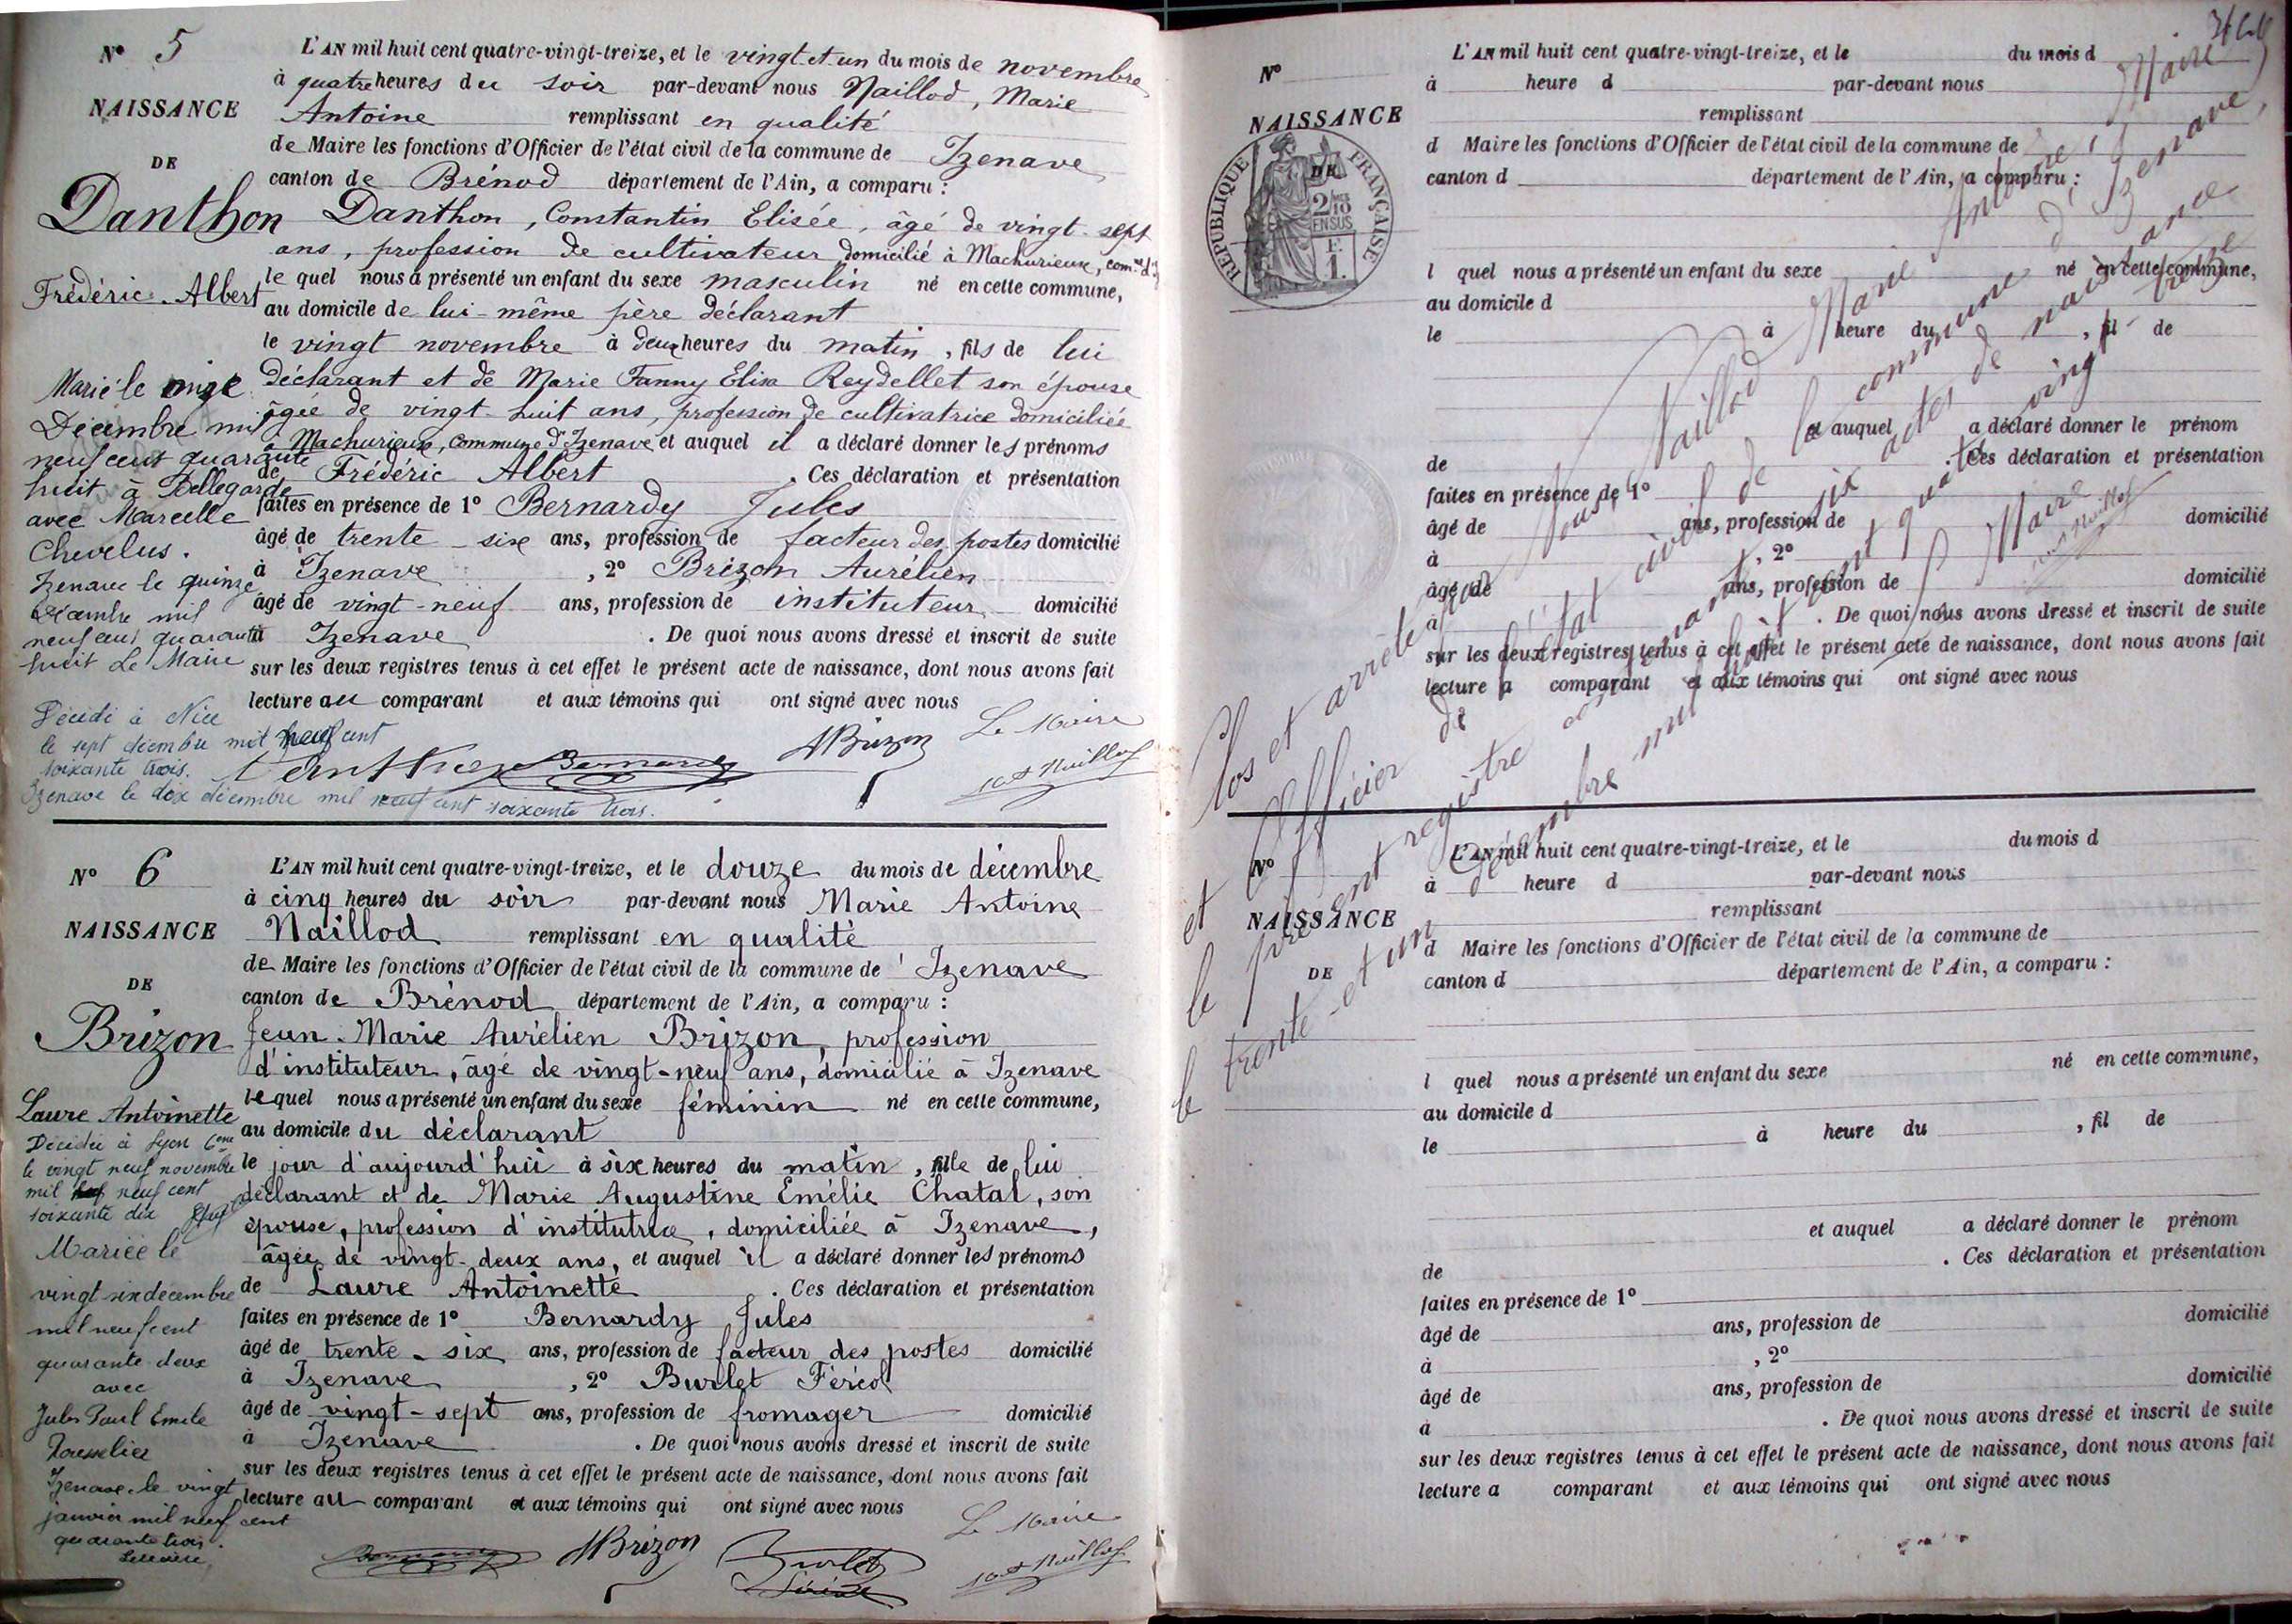 N° 5
NAISSANCE
DE
Danthon
Frédéric Albert
Marié le onze
Décembre mil
neuf cent quarante
huit à Bellegarde
avec Marcelle
Chevelus.
Izenave le quinze
Décembre mil
neuf cent quarante
huit Le Maire
Décédé à Nice
le sept décembre mil neuf cent
soixante trois.
Izenave le dix décembre mil neuf cent soixante trois.
L'AN mil huit cent quatre-vingt-treize, et le vingt-et-un du mois de novembre
à quatre heures du soir par-devant nous Naillod, Marie
Antoine remplissant en qualité
de Maire les fonctions d'Officier de l'état civil de la commune de Izenave
canton de Brénod département de l'Ain, a comparu :
Danthon, Constantin Elisée, âgé de vingt-sept
ans, profession de cultivateur domicilié à Machurieux, comne d'Iz
le quel nous a présenté un enfant du sexe masculin né en cette commune,
au domicile de lui-même père déclarant
le vingt novembre à deux heures du matin, fils de lui
déclarant et de Marie Fanny Elisa Reydellet son épouse
âgée de vingt-huit ans, profession de cultivatrice domiciliée
à Machurieux, commune d'Izenave et auquel il a déclaré donner les prénoms
de Frédéric Albert . Ces déclaration et présentation
faites en présence de 1° Bernardy Jules
âgé de trente-six ans, profession de facteur des postes domicilié
à Izenave , 2° Brizon Aurélien
âgé de vingt-neuf ans, profession de instituteur domicilié
à Izenave . De quoi nous avons dressé et inscrit de suite
sur les deux registres tenus à cet effet le présent acte de naissance, dont nous avons fait
lecture au comparant et aux témoins qui ont signé avec nous
Le Maire
Danthon Bernardy ABrizon Naillod
N° 6
NAISSANCE
DE
Brizon
Laure Antoinette
Décédée à Lyon 6eme
le vingt neuf novembre
mil neuf cent
soixante dix
Mariée le
vingt six décembre
mil neuf cent
quarante deux
avec
Jules Paul Emile
Izenave, le vingt
janvier mil neuf cent
quarante trois.
Le Maire,
L'AN mil huit cent quatre-vingt-treize, et le douze du mois de décembre
à cinq heures du soir par-devant nous Marie Antoine
Naillod remplissant en qualité
de Maire les fonctions d'Officier de l'état civil de la commune de Izenave
canton de Brénod département de l'Ain, a comparu :
Jean-Marie Aurélien Brizon, profession
d'instituteur, âgé de vingt-neuf ans, domicilié à Izenave
lequel nous a présenté un enfant du sexe féminin né en cette commune,
au domicile du déclarant
le jour d'aujourd'hui à six heures du matin, fille de lui
déclarant et de Marie Augustine Emélie Chatal, son
épouse, profession d'institutrice, domiciliée à Izenave,
âgée de vingt-deux ans, et auquel il a déclaré donner les prénoms
de Laure Antoinette . Ces déclaration et présentation
faites en présence de 1° Bernardy Jules
âgé de trente-six ans, profession de facteur des postes domicilié
à Izenave , 2° Burlet Féréol
âgé de vingt-sept ans, profession de fromager domicilié
à Izenave . De quoi nous avons dressé et inscrit de suite
sur les deux registres tenus à cet effet le présent acte de naissance, dont nous avons fait
lecture au comparant et aux témoins qui ont signé avec nous
Le Maire
Bernardy ABrizon Burlet Féréol Naillod
N°
NAISSANCE
DE
RÉPUBLIQUE FRANÇAISE
2/10
EN SUS
1 F.
L'AN mil huit cent quatre-vingt-treize, et le du mois d
à heure d par-devant nous
remplissant
d Maire les fonctions d'Officier de l'état civil de la commune de
canton d département de l'Ain, a comparu :
l quel nous a présenté un enfant du sexe né en cette commune,
au domicile d
le à heure du , fil de
et auquel a déclaré donner le prénom
de . Ces déclaration et présentation
faites en présence de 1°
âgé de ans, profession de domicilié
à , 2°
âgé de ans, profession de domicilié
à . De quoi nous avons dressé et inscrit de suite
sur les deux registres tenus à cet effet le présent acte de naissance, dont nous avons fait
lecture a comparant et aux témoins qui ont signé avec nous
Clos et arrêté par nous Naillod Marie Antoine, Maire
et Officier de l'état civil de la commune d'Izenave,
le présent registre contenant six actes de naissance
le trente-et-un décembre mil huit cent quatre vingt treize
Maire
Naillod
N°
NAISSANCE
DE
L'AN mil huit cent quatre-vingt-treize, et le du mois d
à heure d par-devant nous
remplissant
d Maire les fonctions d'Officier de l'état civil de la commune de
canton d département de l'Ain, a comparu :
l quel nous a présenté un enfant du sexe né en cette commune,
au domicile d
le à heure du , fil de
et auquel a déclaré donner le prénom
de . Ces déclaration et présentation
faites en présence de 1°
âgé de ans, profession de domicilié
à , 2°
âgé de ans, profession de domicilié
à . De quoi nous avons dressé et inscrit de suite
sur les deux registres tenus à cet effet le présent acte de naissance, dont nous avons fait
lecture a comparant et aux témoins qui ont signé avec nous